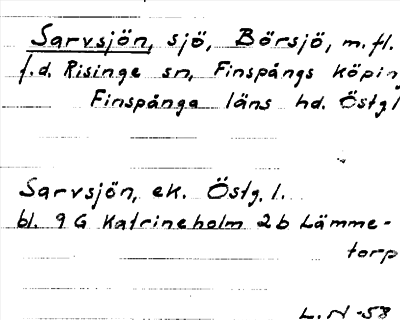 Sarvsjön, sjö, Börsjö, m.fl.
f.d. Risinge sn, Finspångs köping
Finspånga läns hd. Östg l
Sarvsjön, ek. Östg. l.
bl. 9 G Katrineholm 2b Lämme-
torp
L. N -58